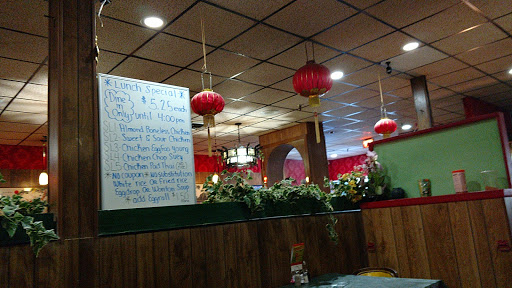 * Lunch Special *
Dine in Only
$ 5.25 each
until 4:00 pm
SL1 Almond Boneless Chicken
SL2 Sweet & Sour Chicken
SL3 Chicken Egg Foo Young
SL4 Chicken Chop Suey
SL5 Chicken Pad Thai
* No Coupon * No Substitution
White rice OR Fried rice
Egg Drop OR Wonton Soup
* add Eggroll